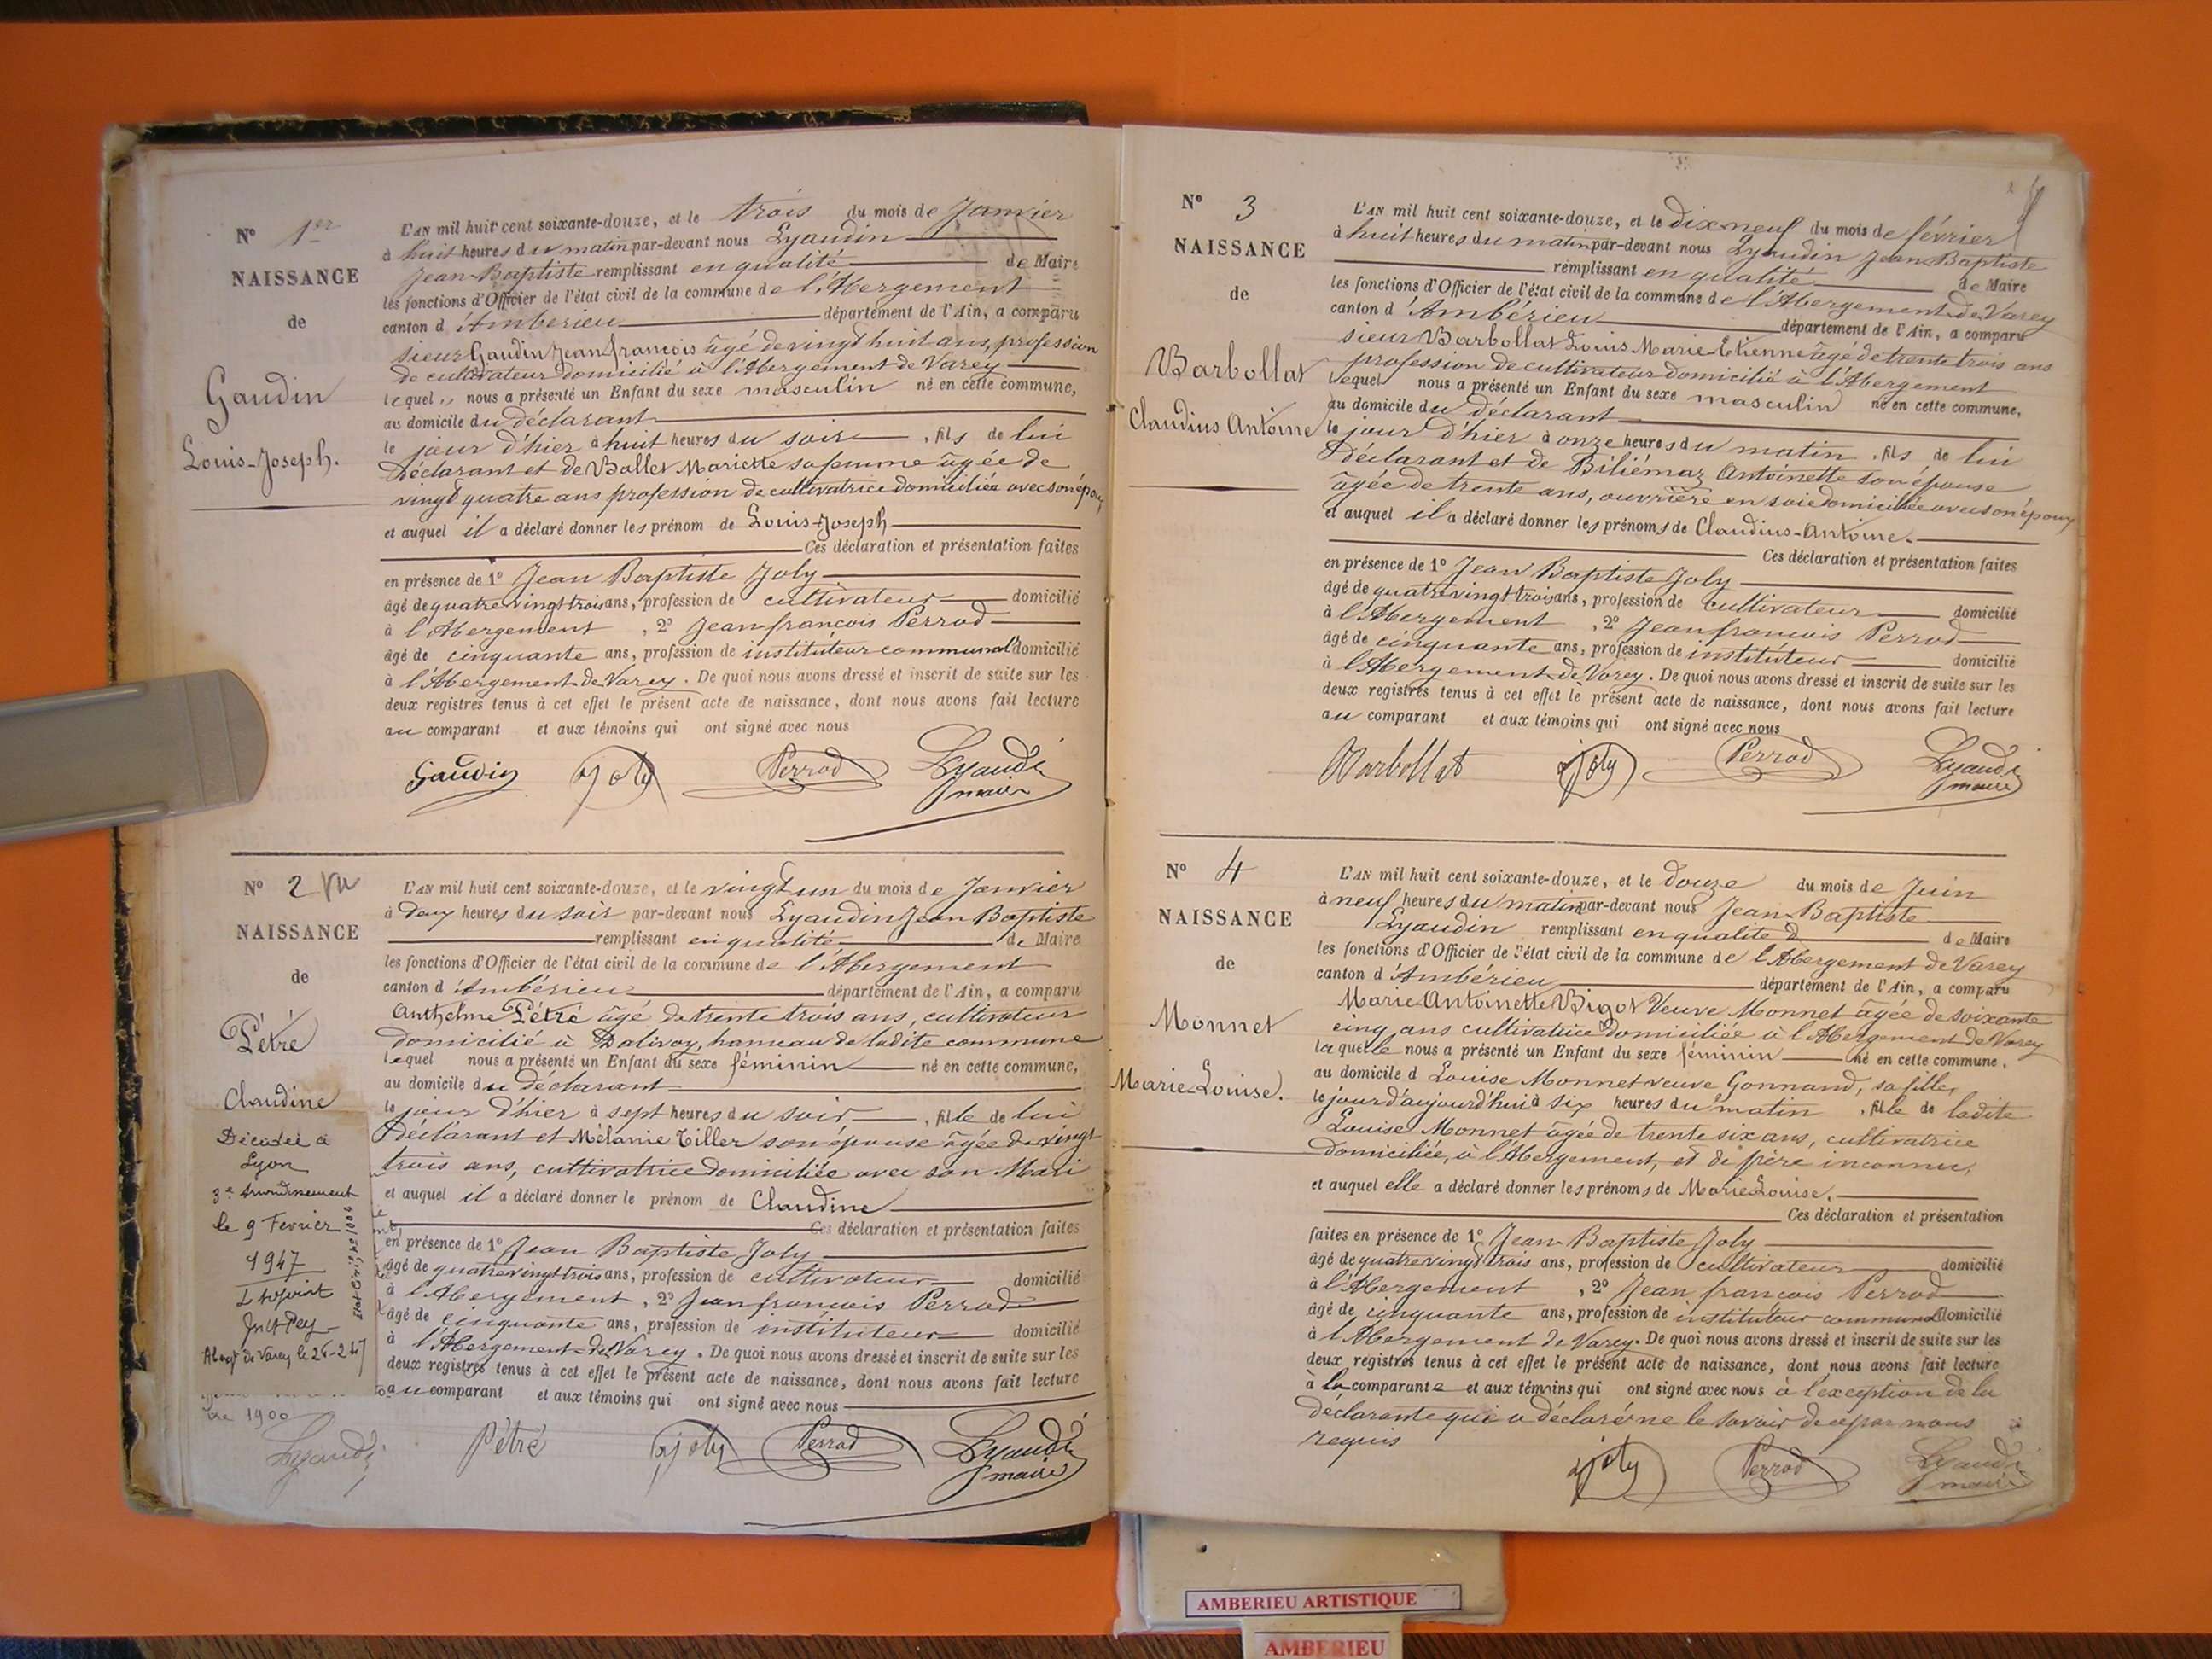 Nº 1er
NAISSANCE
de
Gaudin
Louis-Joseph.
L'AN mil huit cent soixante-douze, et le trois du mois de Janvier
à huit heures du matin par-devant nous Lyaudin
Jean-Baptiste remplissant en qualité de Maire
les fonctions d'Officier de l'état civil de la commune de l'Abergement
canton d'Ambérieu département de l'Ain, a comparu
sieur Gaudin Jean françois âgé de vingt huit ans, profession
de cultivateur domicilié à l'Abergement de Varey
lequel nous a présenté un Enfant du sexe masculin né en cette commune,
au domicile du déclarant
le jour d'hier à huit heures du soir, fils de lui
déclarant et de Ballet Mariette sa femme âgée de
vingt quatre ans profession de cultivatrice domiciliée avec son époux,
et auquel il a déclaré donner les prénom de Louis-Joseph
Ces déclaration et présentation faites
en présence de 1º Jean Baptiste Joly
âgé de quatre vingt trois ans, profession de cultivateur domicilié
à l'Abergement, 2º Jean françois Perrod
âgé de cinquante ans, profession de instituteur communal domicilié
à l'Abergement de Varey. De quoi nous avons dressé et inscrit de suite sur les
deux registres tenus à cet effet le présent acte de naissance, dont nous avons fait lecture
au comparant et aux témoins qui ont signé avec nous
Gaudin Joly Perrod Lyaudin
maire
Nº 2 Vu
NAISSANCE
de
Pétré
Claudine
Décédée à
Lyon
3e Arrondissement
le 9 Fevrier
1947
Abergt de Varey le 26-2 47
1900
Lyaudin
L'AN mil huit cent soixante-douze, et le vingt un du mois de Janvier
à deux heures du soir par-devant nous Lyaudin Jean Baptiste
remplissant en qualité de Maire
les fonctions d'Officier de l'état civil de la commune de l'Abergement
canton d'Ambérieu département de l'Ain, a comparu
Anthelme Pétré âgé de trente trois ans, cultivateur
domicilié à Dalivoy, hameau de ladite commune
lequel nous a présenté un Enfant du sexe féminin né en cette commune,
au domicile du déclarant
le jour d'hier à sept heures du soir, fille de lui
déclarant et Mélanie Tiller son épouse âgée de vingt
trois ans, cultivatrice domiciliée avec son Mari
et auquel il a déclaré donner le prénom de Claudine
Ces déclaration et présentation faites
en présence de 1º Jean Baptiste Joly
âgé de quatre vingt trois ans, profession de cultivateur domicilié
à l'Abergement, 2º Jean françois Perrod
âgé de cinquante ans, profession de instituteur domicilié
à l'Abergement de Varey. De quoi nous avons dressé et inscrit de suite sur les
deux registres tenus à cet effet le présent acte de naissance, dont nous avons fait lecture
au comparant et aux témoins qui ont signé avec nous
Pétré Joly Perrod Lyaudin
maire
Nº 3
NAISSANCE
de
Barbollat
Claudius Antoine
L'AN mil huit cent soixante-douze, et le dix neuf du mois de février
à huit heures du matin par-devant nous Lyaudin Jean Baptiste
remplissant en qualité de Maire
les fonctions d'Officier de l'état civil de la commune de l'Abergement de Varey
canton d'Ambérieu département de l'Ain, a comparu
sieur Barbollat Louis Marie Etienne âgé de trente trois ans
profession de cultivateur domicilié à l'Abergement
lequel nous a présenté un Enfant du sexe masculin né en cette commune,
au domicile du déclarant
le jour d'hier à onze heures du matin, fils de lui
déclarant et de Biliémaz Antoinette son épouse
âgée de trente ans, ouvrière en soie domiciliée avec son époux
et auquel il a déclaré donner les prénoms de Claudius-Antoine.
Ces déclaration et présentation faites
en présence de 1º Jean Baptiste Joly
âgé de quatre vingt trois ans, profession de cultivateur domicilié
à l'Abergement, 2º Jean françois Perrod
âgé de cinquante ans, profession de instituteur domicilié
à l'Abergement de Varey. De quoi nous avons dressé et inscrit de suite sur les
deux registres tenus à cet effet le présent acte de naissance, dont nous avons fait lecture
au comparant et aux témoins qui ont signé avec nous
Barbollat Joly Perrod Lyaudin
maire
Nº 4
NAISSANCE
de
Monnet
Marie-Louise.
L'AN mil huit cent soixante-douze, et le douze du mois de Juin
à neuf heures du matin par-devant nous Jean-Baptiste
Lyaudin remplissant en qualité d de Maire
les fonctions d'Officier de l'état civil de la commune de l'Abergement de Varey
canton d'Ambérieu département de l'Ain, a comparu
Marie-Antoinette Bigot Veuve Monnet âgée de soixante
cinq ans cultivatrice domiciliée à l'Abergement de Varey
laquelle nous a présenté un Enfant du sexe féminin né en cette commune,
au domicile d Louise Monnet veuve Gonnand, sa fille,
le jour d'aujourd'hui à six heures du matin, fille de ladite
Louise Monnet âgée de trente six ans, cultivatrice
domiciliée, à l'Abergement, et de père inconnu,
et auquel elle a déclaré donner les prénoms de Marie Louise.
Ces déclaration et présentation
faites en présence de 1º Jean-Baptiste Joly
âgé de quatre vingt trois ans, profession de cultivateur domicilié
à l'Abergement, 2º Jean françois Perrod
âgé de cinquante ans, profession de instituteur communal domicilié
à l'Abergement de Varey. De quoi nous avons dressé et inscrit de suite sur les
deux registres tenus à cet effet le présent acte de naissance, dont nous avons fait lecture
à la comparante et aux témoins qui ont signé avec nous à l'exception de la
déclarante qui a déclaré ne le savoir de ce par nous
requis
Joly Perrod Lyaudin
maire
AMBERIEU ARTISTIQUE
AMBERIEU